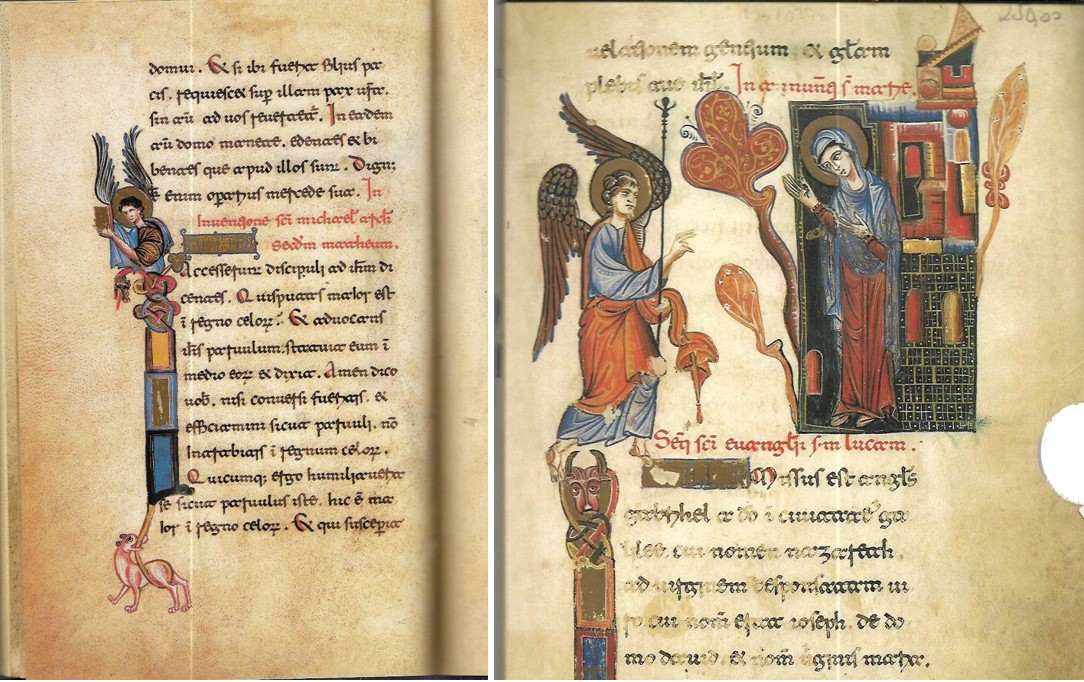 domui. Et si ibi fuerit filius pa
cis, requiescet sup̄ illam pax ur̄a.
sin aūt ad uos reuertet̄. In eadem
aūt domo manete. edentes et bi
bentes que apud illos sunt. Dign;
ē enim operarius mercede sua. In
Inuentione sc̄i michael
secd̄m matheum.
Accesserunt discipuli ad ih̄m di
centes. Quis putas maior est
ī regno celoꝝ. Et aduocans
ih̄s paruulum. statuit eum ī
medio eoꝝ et dixit. Amen dico
uob̄. nisi conuersi fueritis. et
efficiamini sicut paruuli. nō
intrabitis ī regnum celoꝝ.
Quicumq; ergo humiliauerit
se sicut paruulus iste. hic ē ma
ior ī regno celoꝝ. Et qui susceperit
uelationem gentium et gl̄am
plebis tue isrl̄. In s̄ marie.
Seq̄ sc̄i euanglīi s̄m lucam.
Missus est angl̄s
gabrihel a dō ī ciuitatē ga
lilee. cui nomen nazareth.
ad uirginem desponsatam ui
ro cui nom̄ erat ioseph. de do
mo dauid. et nom̄ uirginis maria.